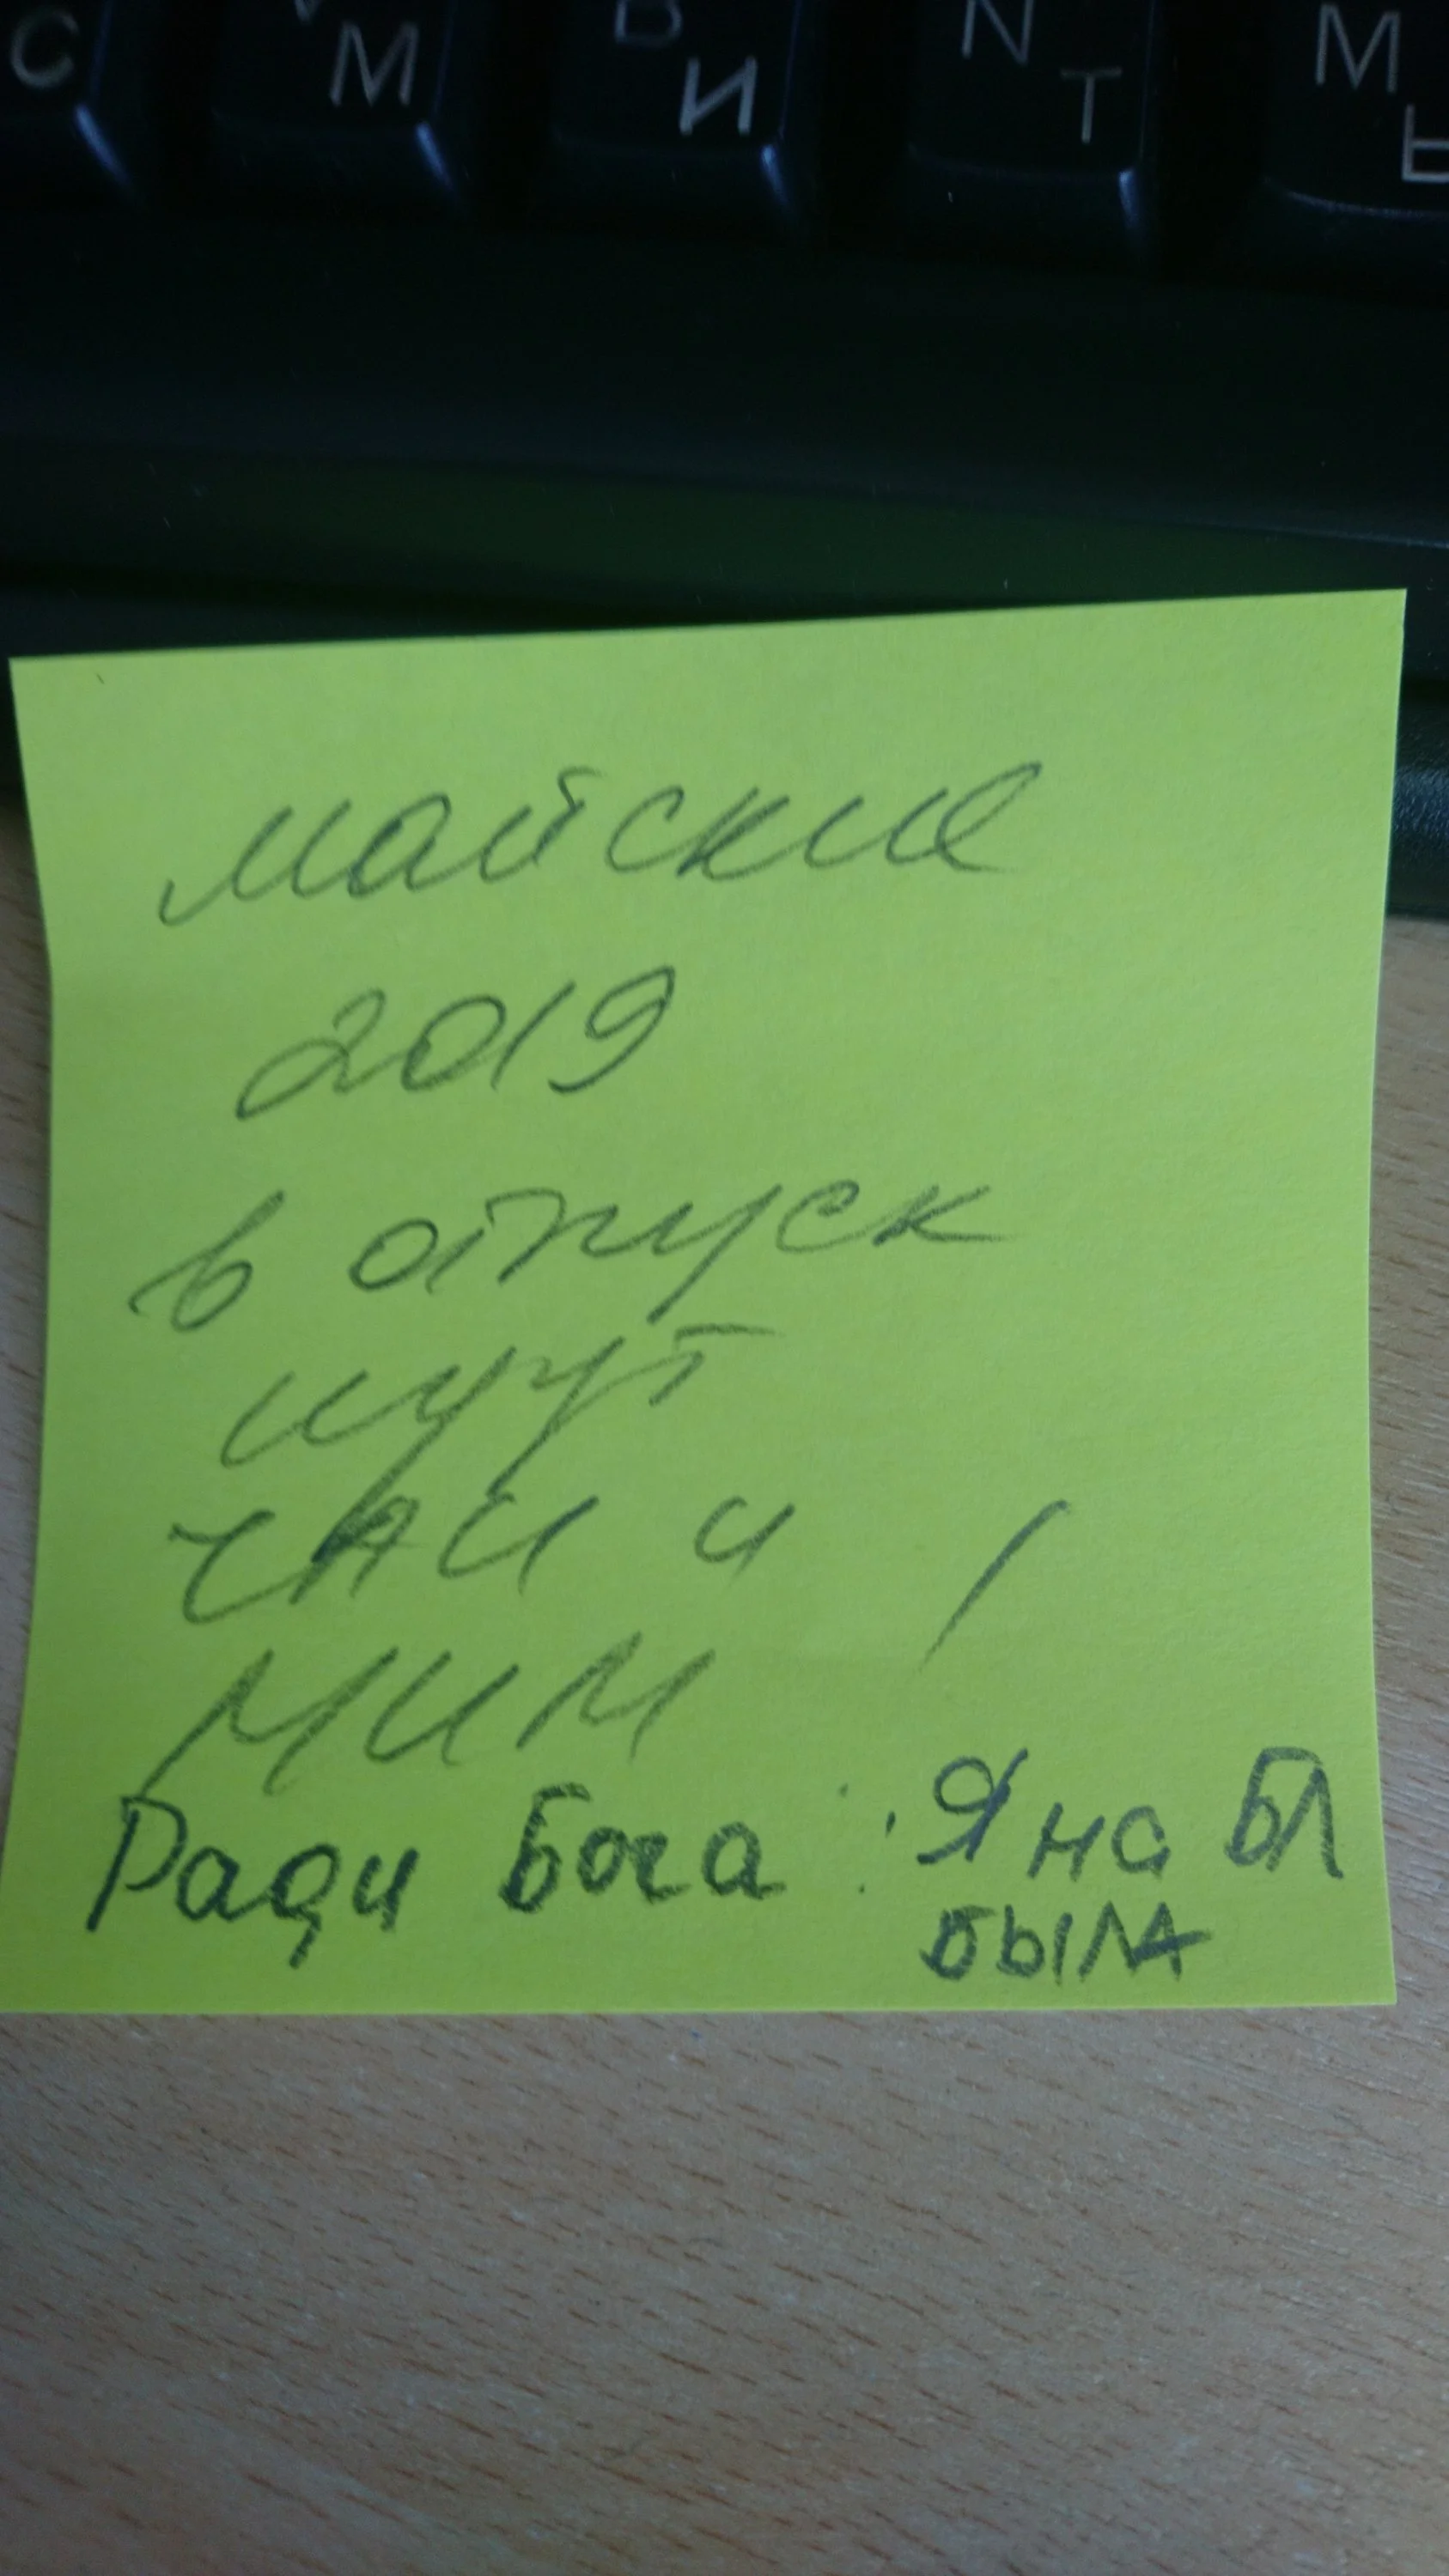 С М В И N Т М Ь
майские
2019
в отпуск
идут
ЧАИ и
МИМ
Ради Бога : Я на БЛ
была